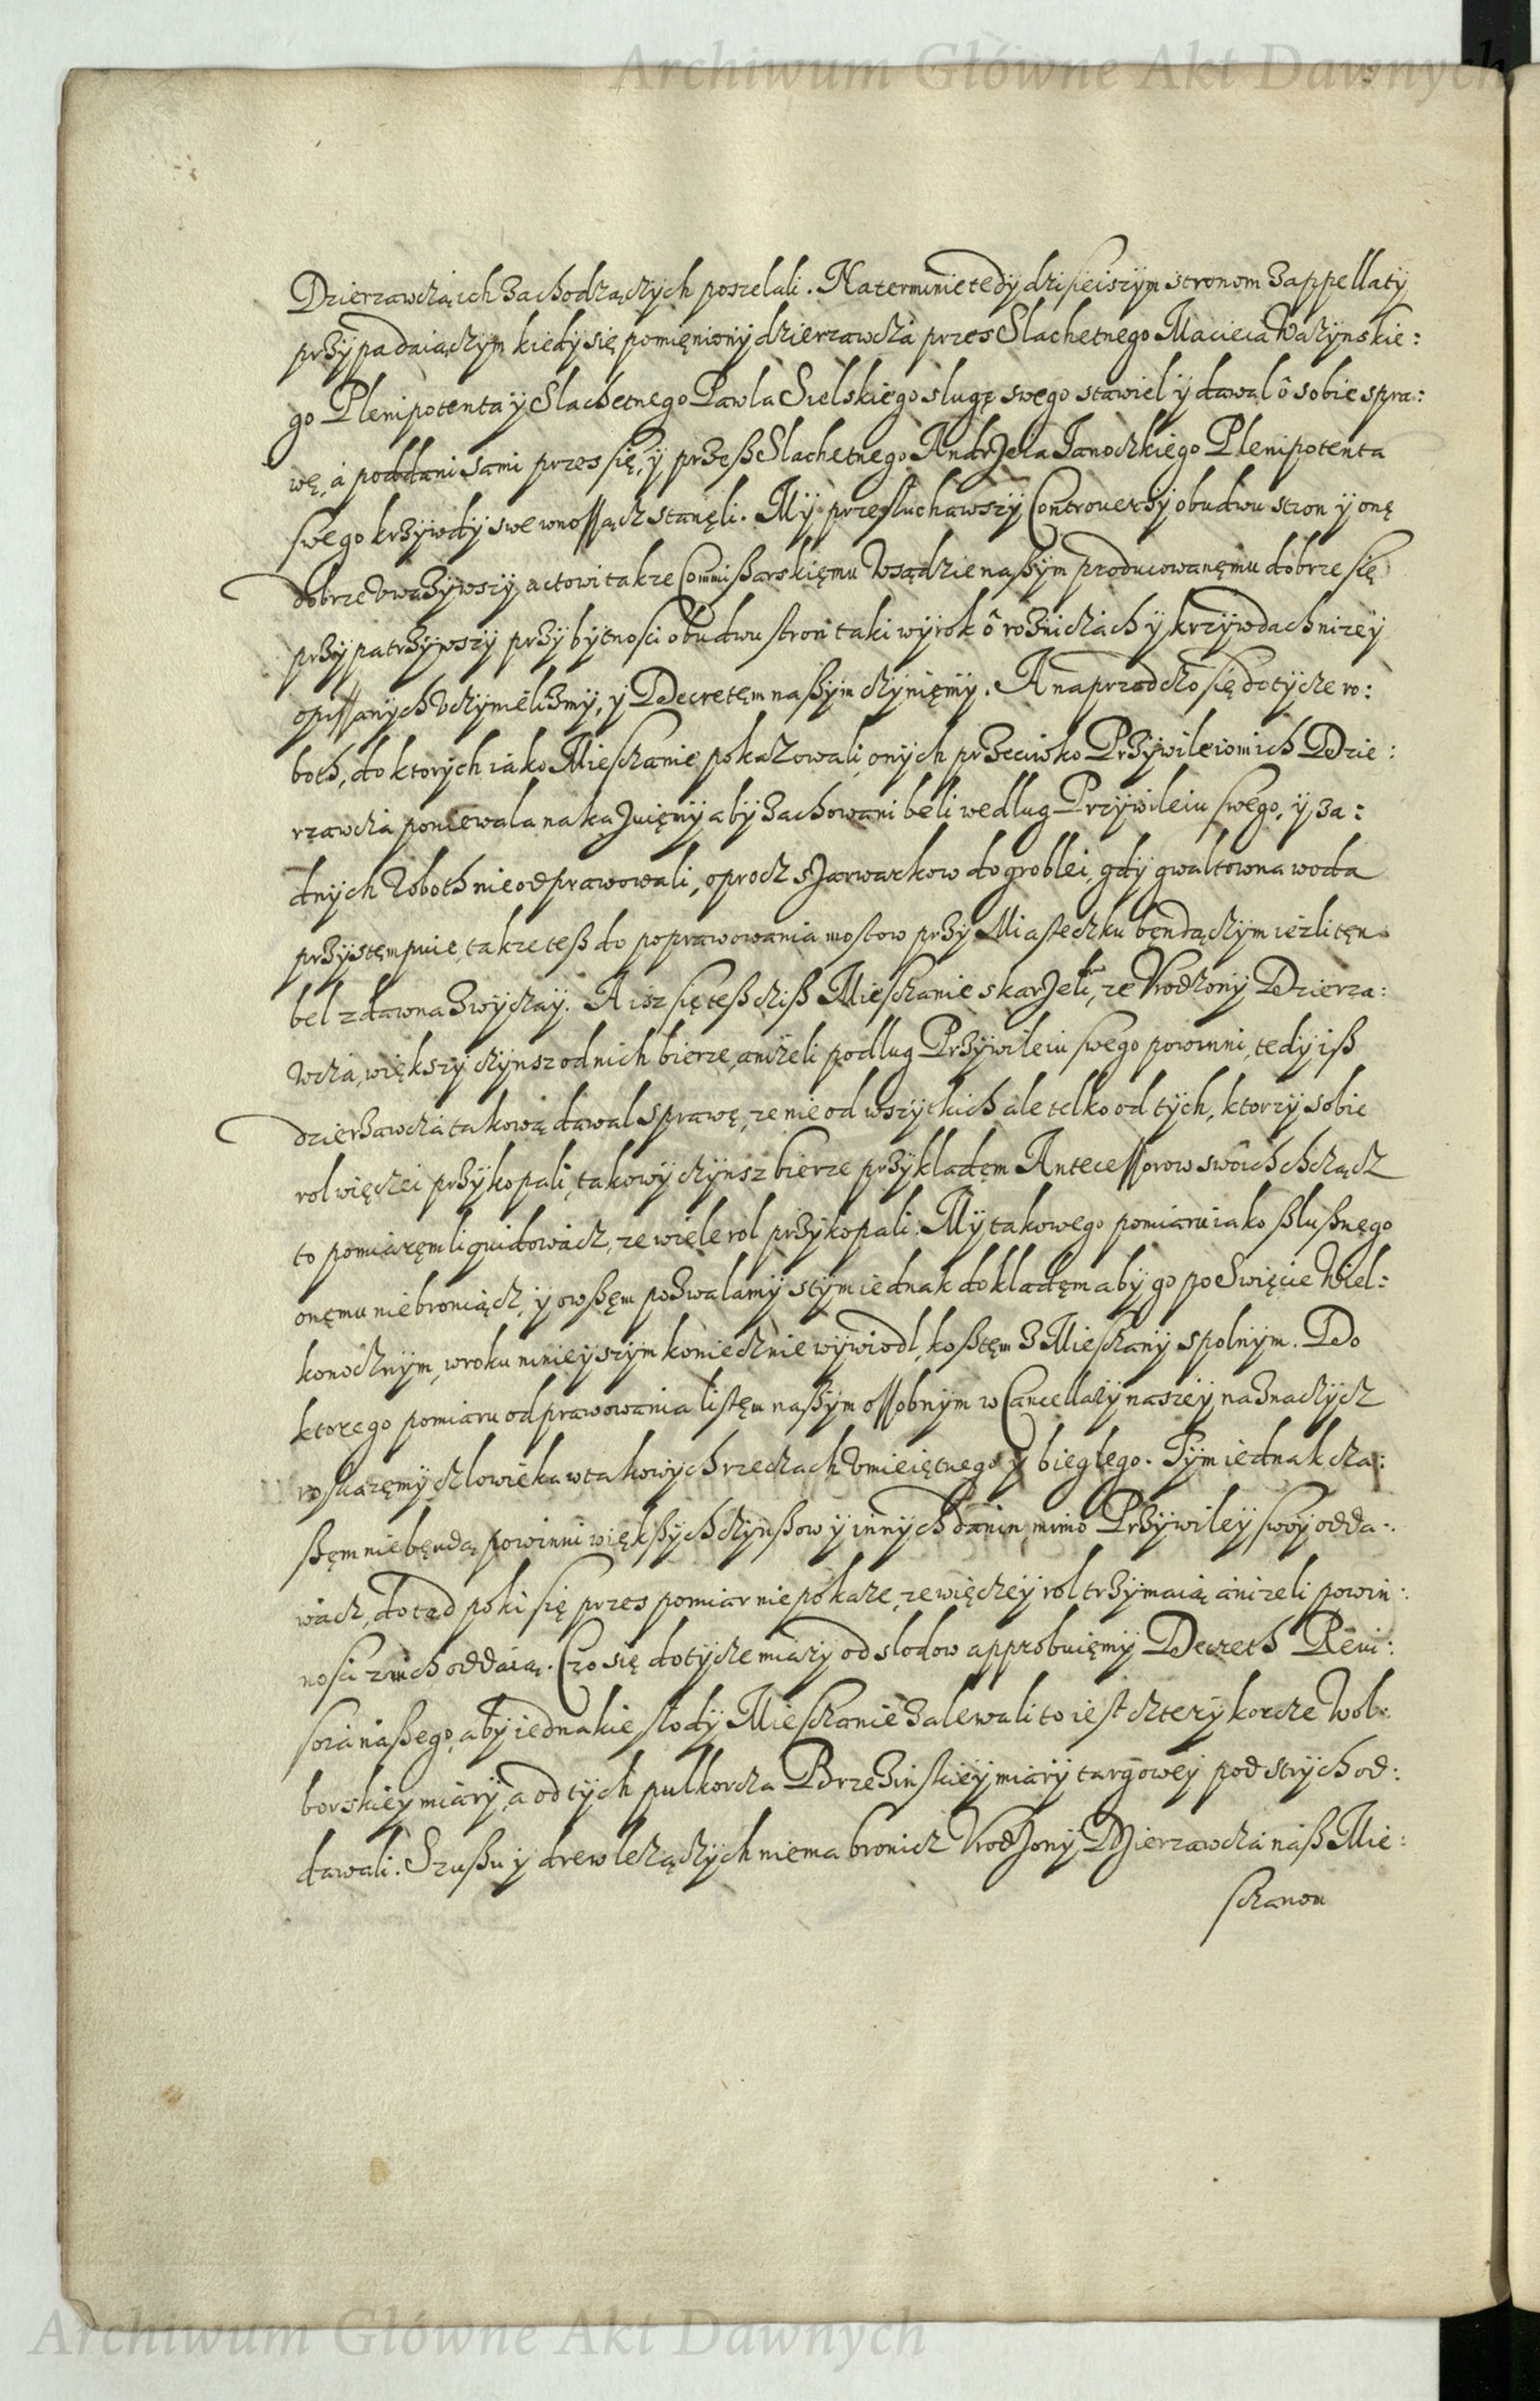 Archiwum Główne Akt Dawnych
Dzierzawczą ich zachodzączych poszelali. Na terminie tedy dzisieiszym stronom z appellaty
przypadaiączym kiedy się pomięniony dzierzawcza przes Slachetnego Macieia Wazynskie:
go Plenipotenta y Slachetnego Pawla Sielskiego slugę swego stawiel y dawal o sobie spra:
wę, a poddani sami przes się, y przeß Slachetnego Andrzeia Janoczkiego Plenipotenta
swego krzywdy swe wnossącz stanęli. My przesluchawszy Controuersy obudwu stron y onę
dobrze vwazywszy, actowi takze Commißarskięmu v sądzie naßym producowanęmu dobrze się
przypatrzywszy przy bytnosci obudwu stron taki wyrok o rozniczach y krzywdach nizey
opissanych vczynielizmy, y Decretęm naßym czynięmy. A naprzod czo się dotycze ro:
both, do ktorych iako Miesczanie pokazowali onych przeciwko Przywileiom ich Dzie:
rzawcza poniewala nakazuięmy aby zachowani beli wedlug Przywileiu swego, y za:
dnych roboth nie odprawowali, oprocz szarwarkow do groblei, gdy gwaltowna woda
przystęmpuie, takze teß do poprawowania mostow przy Miasteczku bęndączym iezli tęn
bel z dawna zwyczay. A isz się teß cziß Miesczanie skarzeli, ze Vrodzony Dzierza:
wcza, większy czynsz od nich bierze, anizeli podlug Przywileiu swego powinni, tedy iß
dzierzawcza takową dawal sprawę, ze nie od wszytkich ale telko od tych, ktorzy sobie
rol więczei przykopali, takowy czynsz bierze przykladęm Antecessorow swoich chcząncz
to pomiaręm liquidowacz, ze wiele rol przykopali. My takowego pomiaru iako ßlußnęgo
onęmu nie broniącz, y owßęm pozwalamy s tym iednak dokladęm aby go po Swięcie Wiel:
konocznym, w roku ninieyszym koniecznie wywiodl, koßtęm z Miesczany spolnym. Do
ktorego pomiaru odprawowania listęm naßym ossobnym w Cancellaryi naszey naznaczycz
roskazęmy czlowieka w takowych rzeczach vmieiętnego y bieglego. Tym iednak cza:
ßęm nie będą powinni więkßych czynßow y innych danin, mimo Przywiley swoy odda:
wacz, dotąd poki się przes pomiar nie pokaze, ze więczey rol trzymaią anizeli powin:
nosci z nich oddaią. Czo się dotycze miary od slodow approbuięmy Decreth Reui:
sora naßego, aby iednakie slody Miesczanie zalewali to iest cztery korcze Wol:
borskiey miary, a od tych pulkorcza Brzezinskiey miary targowey pod strych od:
dawali. Szußu y drew leżączych nie ma bronicz Vrodzony Dzierzawcza naß Mie:
sczanom
Archiwum Główne Akt Dawnych